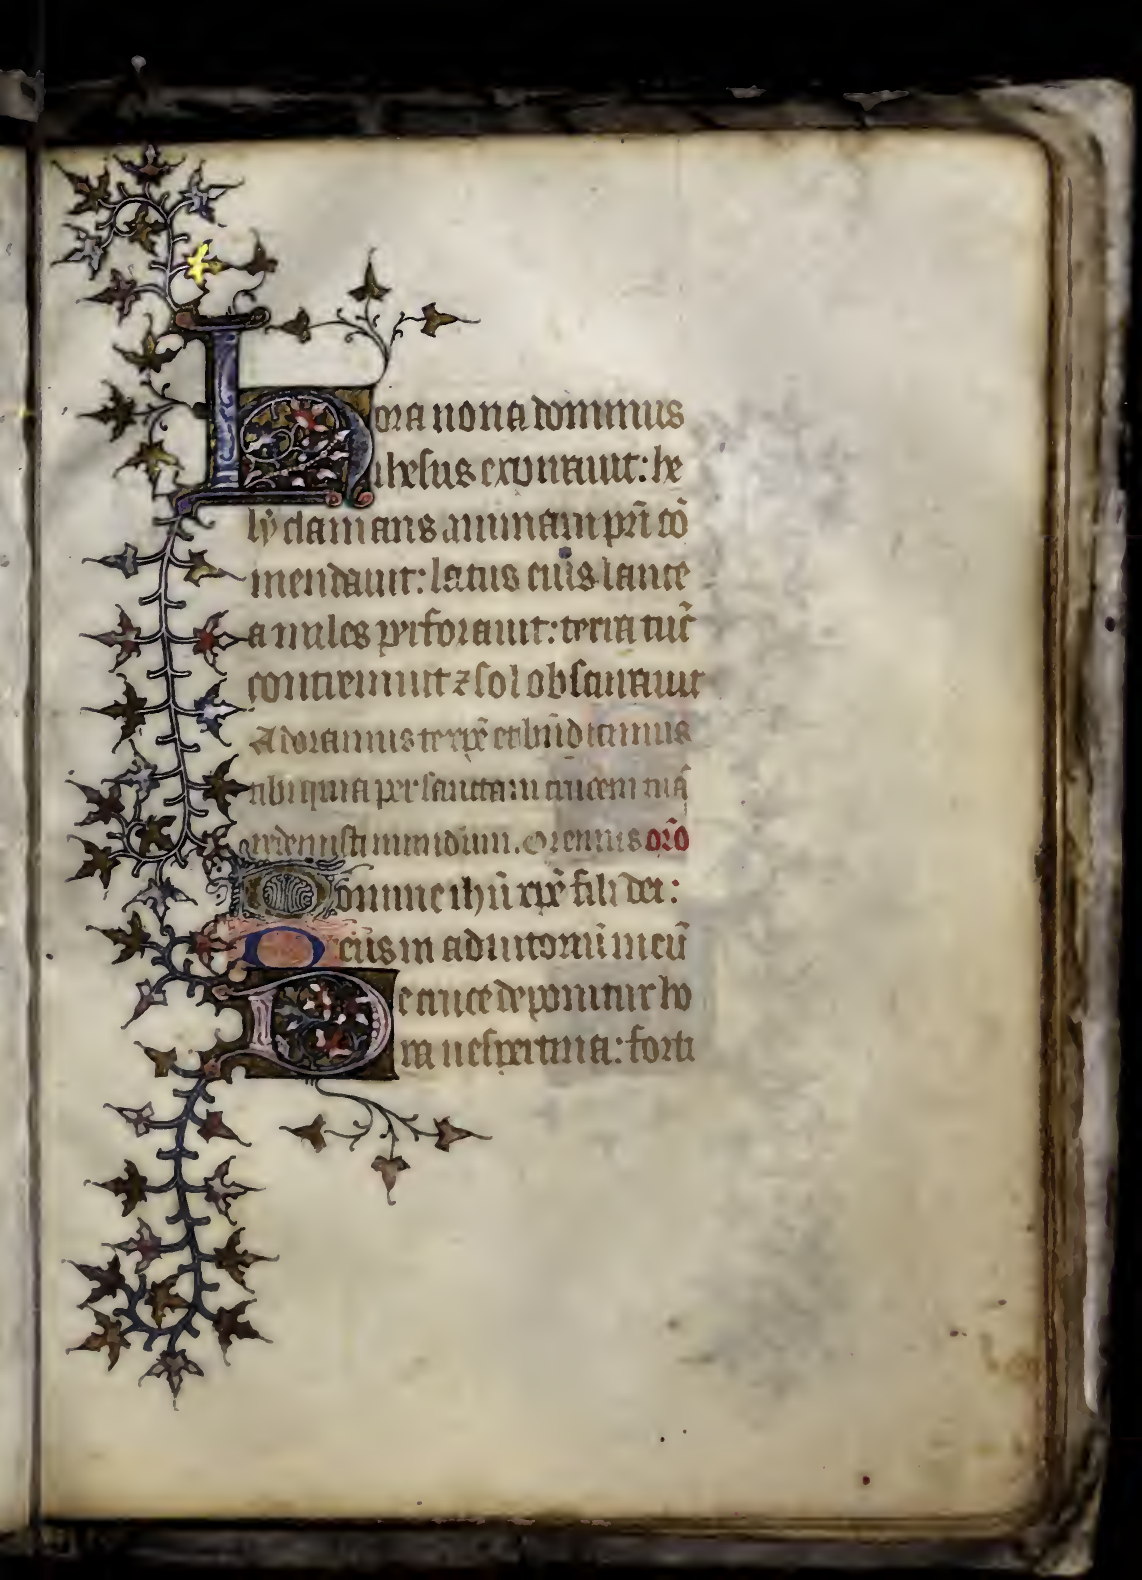 Hora nona dominus
ihesus expirauit: he
ly clamans animam pr̄i cō
mendauit: latus eiꝰ lance
a miles perforauit: terra tūc
contremuit ⁊ sol obscurauit
Adoramus te xp̄e et bn̄dicimus
tibi quia per sanctam crucem tuā
redemisti mundum. Oremus or̄o
Domine ih̄u xp̄e fili dei:
Deus in adiutoriū meū
De cruce deponitur ho
ra uespertina: forti